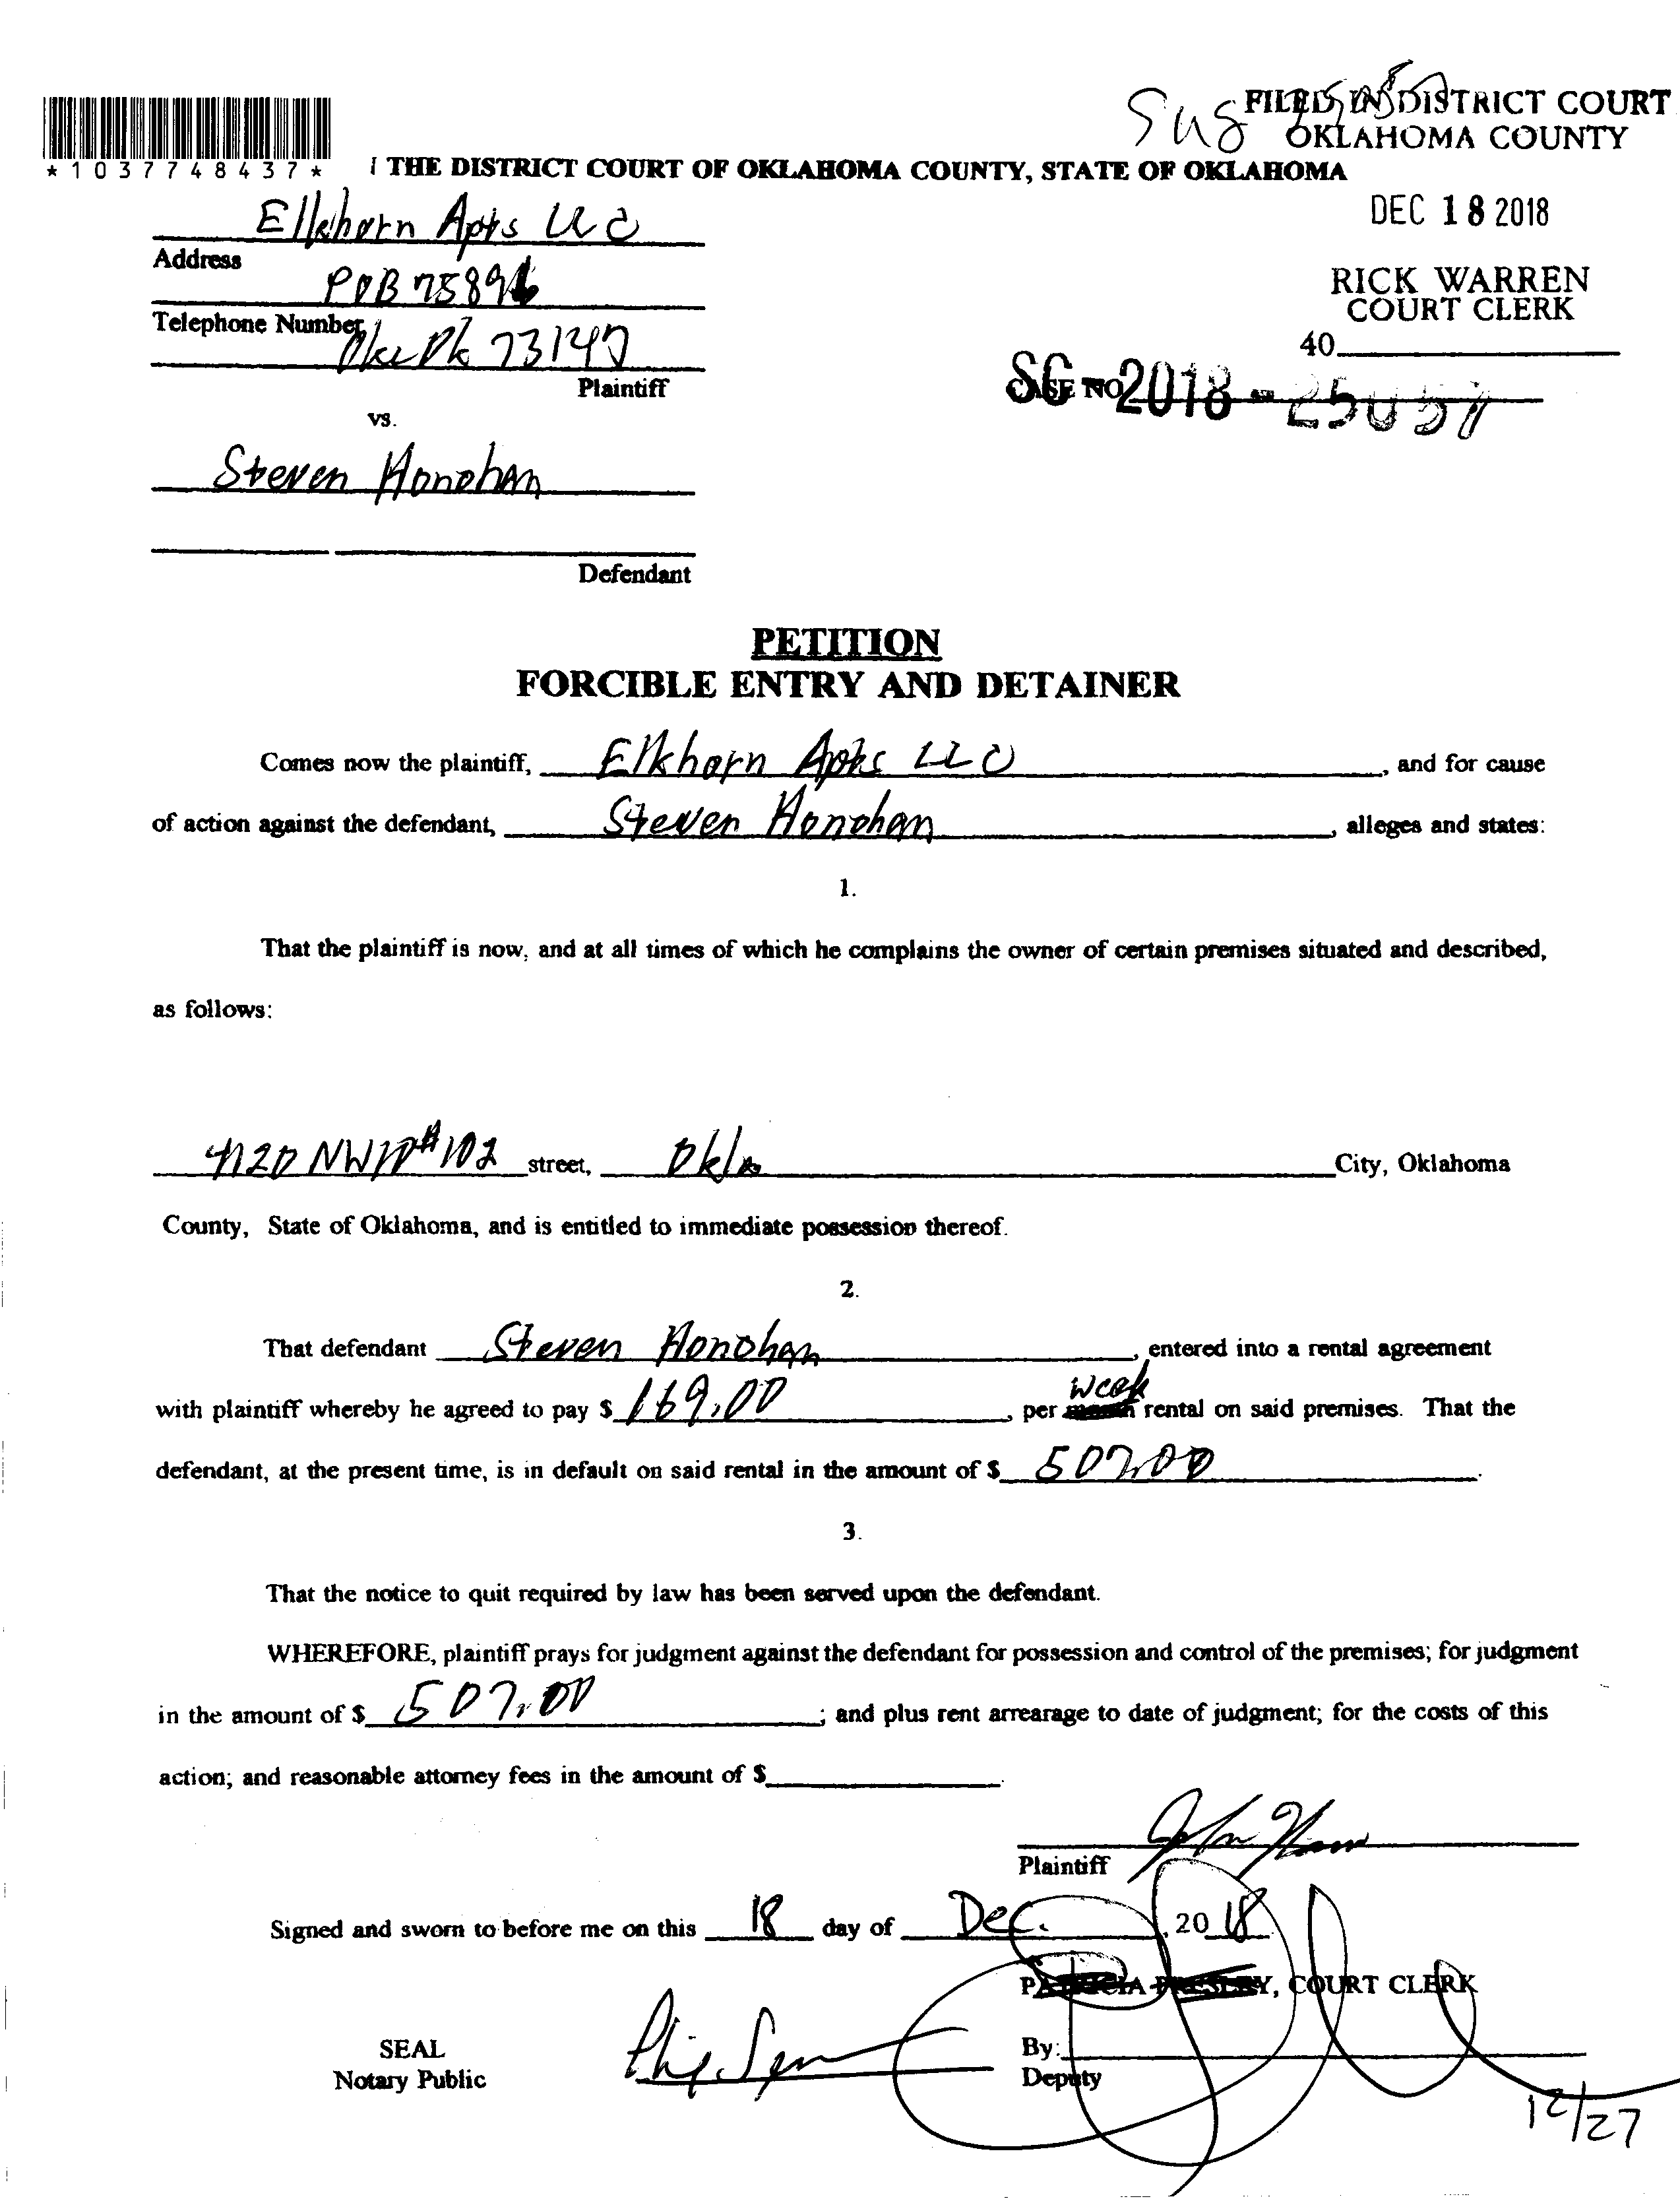 FILED IN DISTRICT COURT
OKLAHOMA COUNTY
*1037748437*
THE DISTRICT COURT OF OKLAHOMA COUNTY, STATE OF OKLAHOMA
DEC 18 2018
Elkhorn Apts LLC
Address
POB 75896
RICK WARREN
COURT CLERK
Telephone Number
Okc Ok 73147
40
Plaintiff
CASE NO.
SC-2018-
vs.
Steven Honohan
Defendant
PETITION
FORCIBLE ENTRY AND DETAINER
Comes now the plaintiff, Elkhorn Apts LLC, and for cause
of action against the defendant, Steven Honohan, alleges and states:
1.
That the plaintiff is now, and at all times of which he complains the owner of certain premises situated and described,
as follows:
4120 NW10 #102 street, Okla City, Oklahoma
County, State of Oklahoma, and is entitled to immediate possession thereof.
2.
That defendant Steven Honohan, entered into a rental agreement
with plaintiff whereby he agreed to pay $ 169.00, per month week rental on said premises. That the
defendant, at the present time, is in default on said rental in the amount of $ 507.00.
3.
That the notice to quit required by law has been served upon the defendant.
WHEREFORE, plaintiff prays for judgment against the defendant for possession and control of the premises; for judgment
in the amount of $ 507.00; and plus rent arrearage to date of judgment; for the costs of this
action; and reasonable attorney fees in the amount of $
Plaintiff
Signed and sworn to before me on this 18 day of Dec., 2018
PATRICIA PRESLEY, COURT CLERK
SEAL
Notary Public
By:
Deputy
12/27